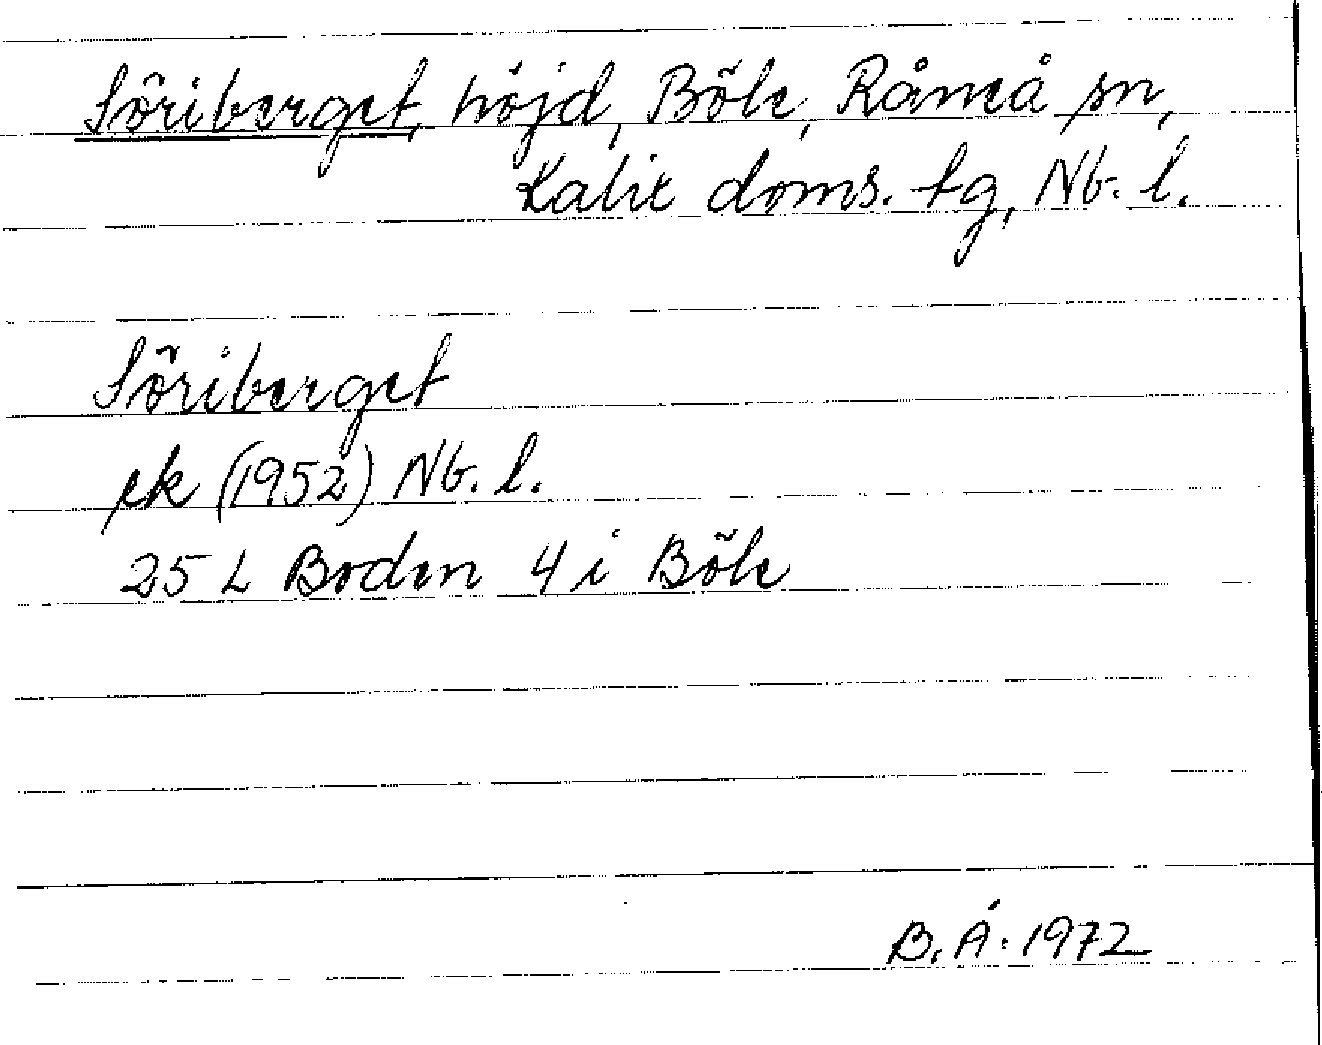 Söriberget, höjd, Böle, Råneå sn,
Kalix doms. tg, Nb. l.
Söriberget
ek (1952) Nb. l.
25 L Boden 4 i Böle
B. Å. 1972